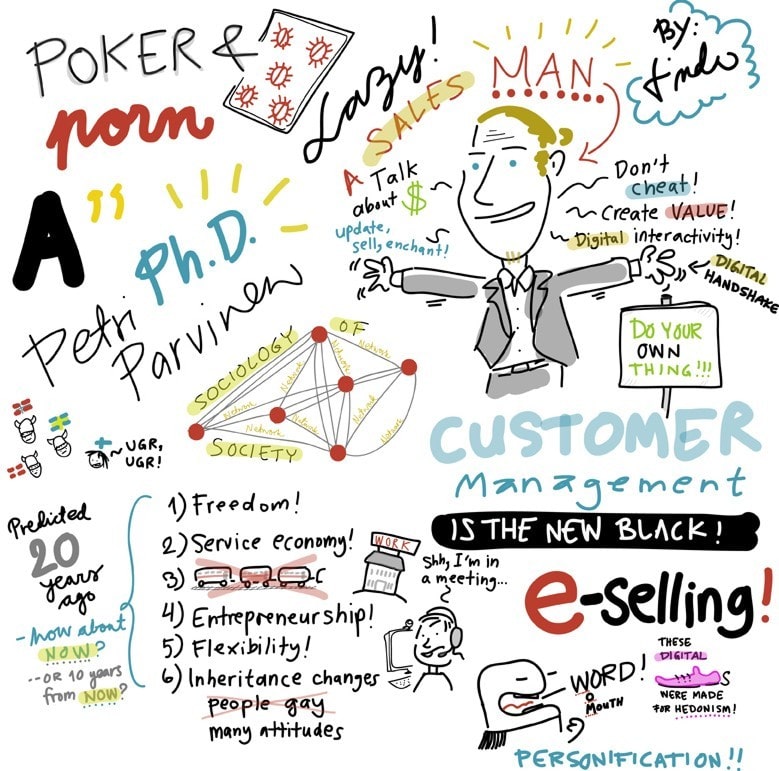 POKER &
porn
Lazy!
A SALES
MAN
BY:
A"
Ph.D.
Petri
Parvinen
Talk
about $
update,
sell, enchant!
Don't
cheat!
Create VALUE!
Digital interactivity!
DIGITAL
HANDSHAKE
DO YOUR
OWN
THING!!!
SOCIOLOGY
OF
SOCIETY
Network
Network
Network
Network
Network
Network
Network
Network
UGR,
UGR!
CUSTOMER
Management
IS THE NEW BLACK!
Predicted
20
years
ago
- how about
NOW?
--OR 10 years
from NOW?
1) Freedom!
2) Service economy!
3)
4) Entrepreneurship!
5) Flexibility!
6) Inheritance changes
people gay
many attitudes
WORK
Shh, I'm in
a meeting...
e-selling!
WORD!
O
MOUTH
THESE
DIGITAL
S
WERE MADE
FOR HEDONISM!
PERSONIFICATION!!